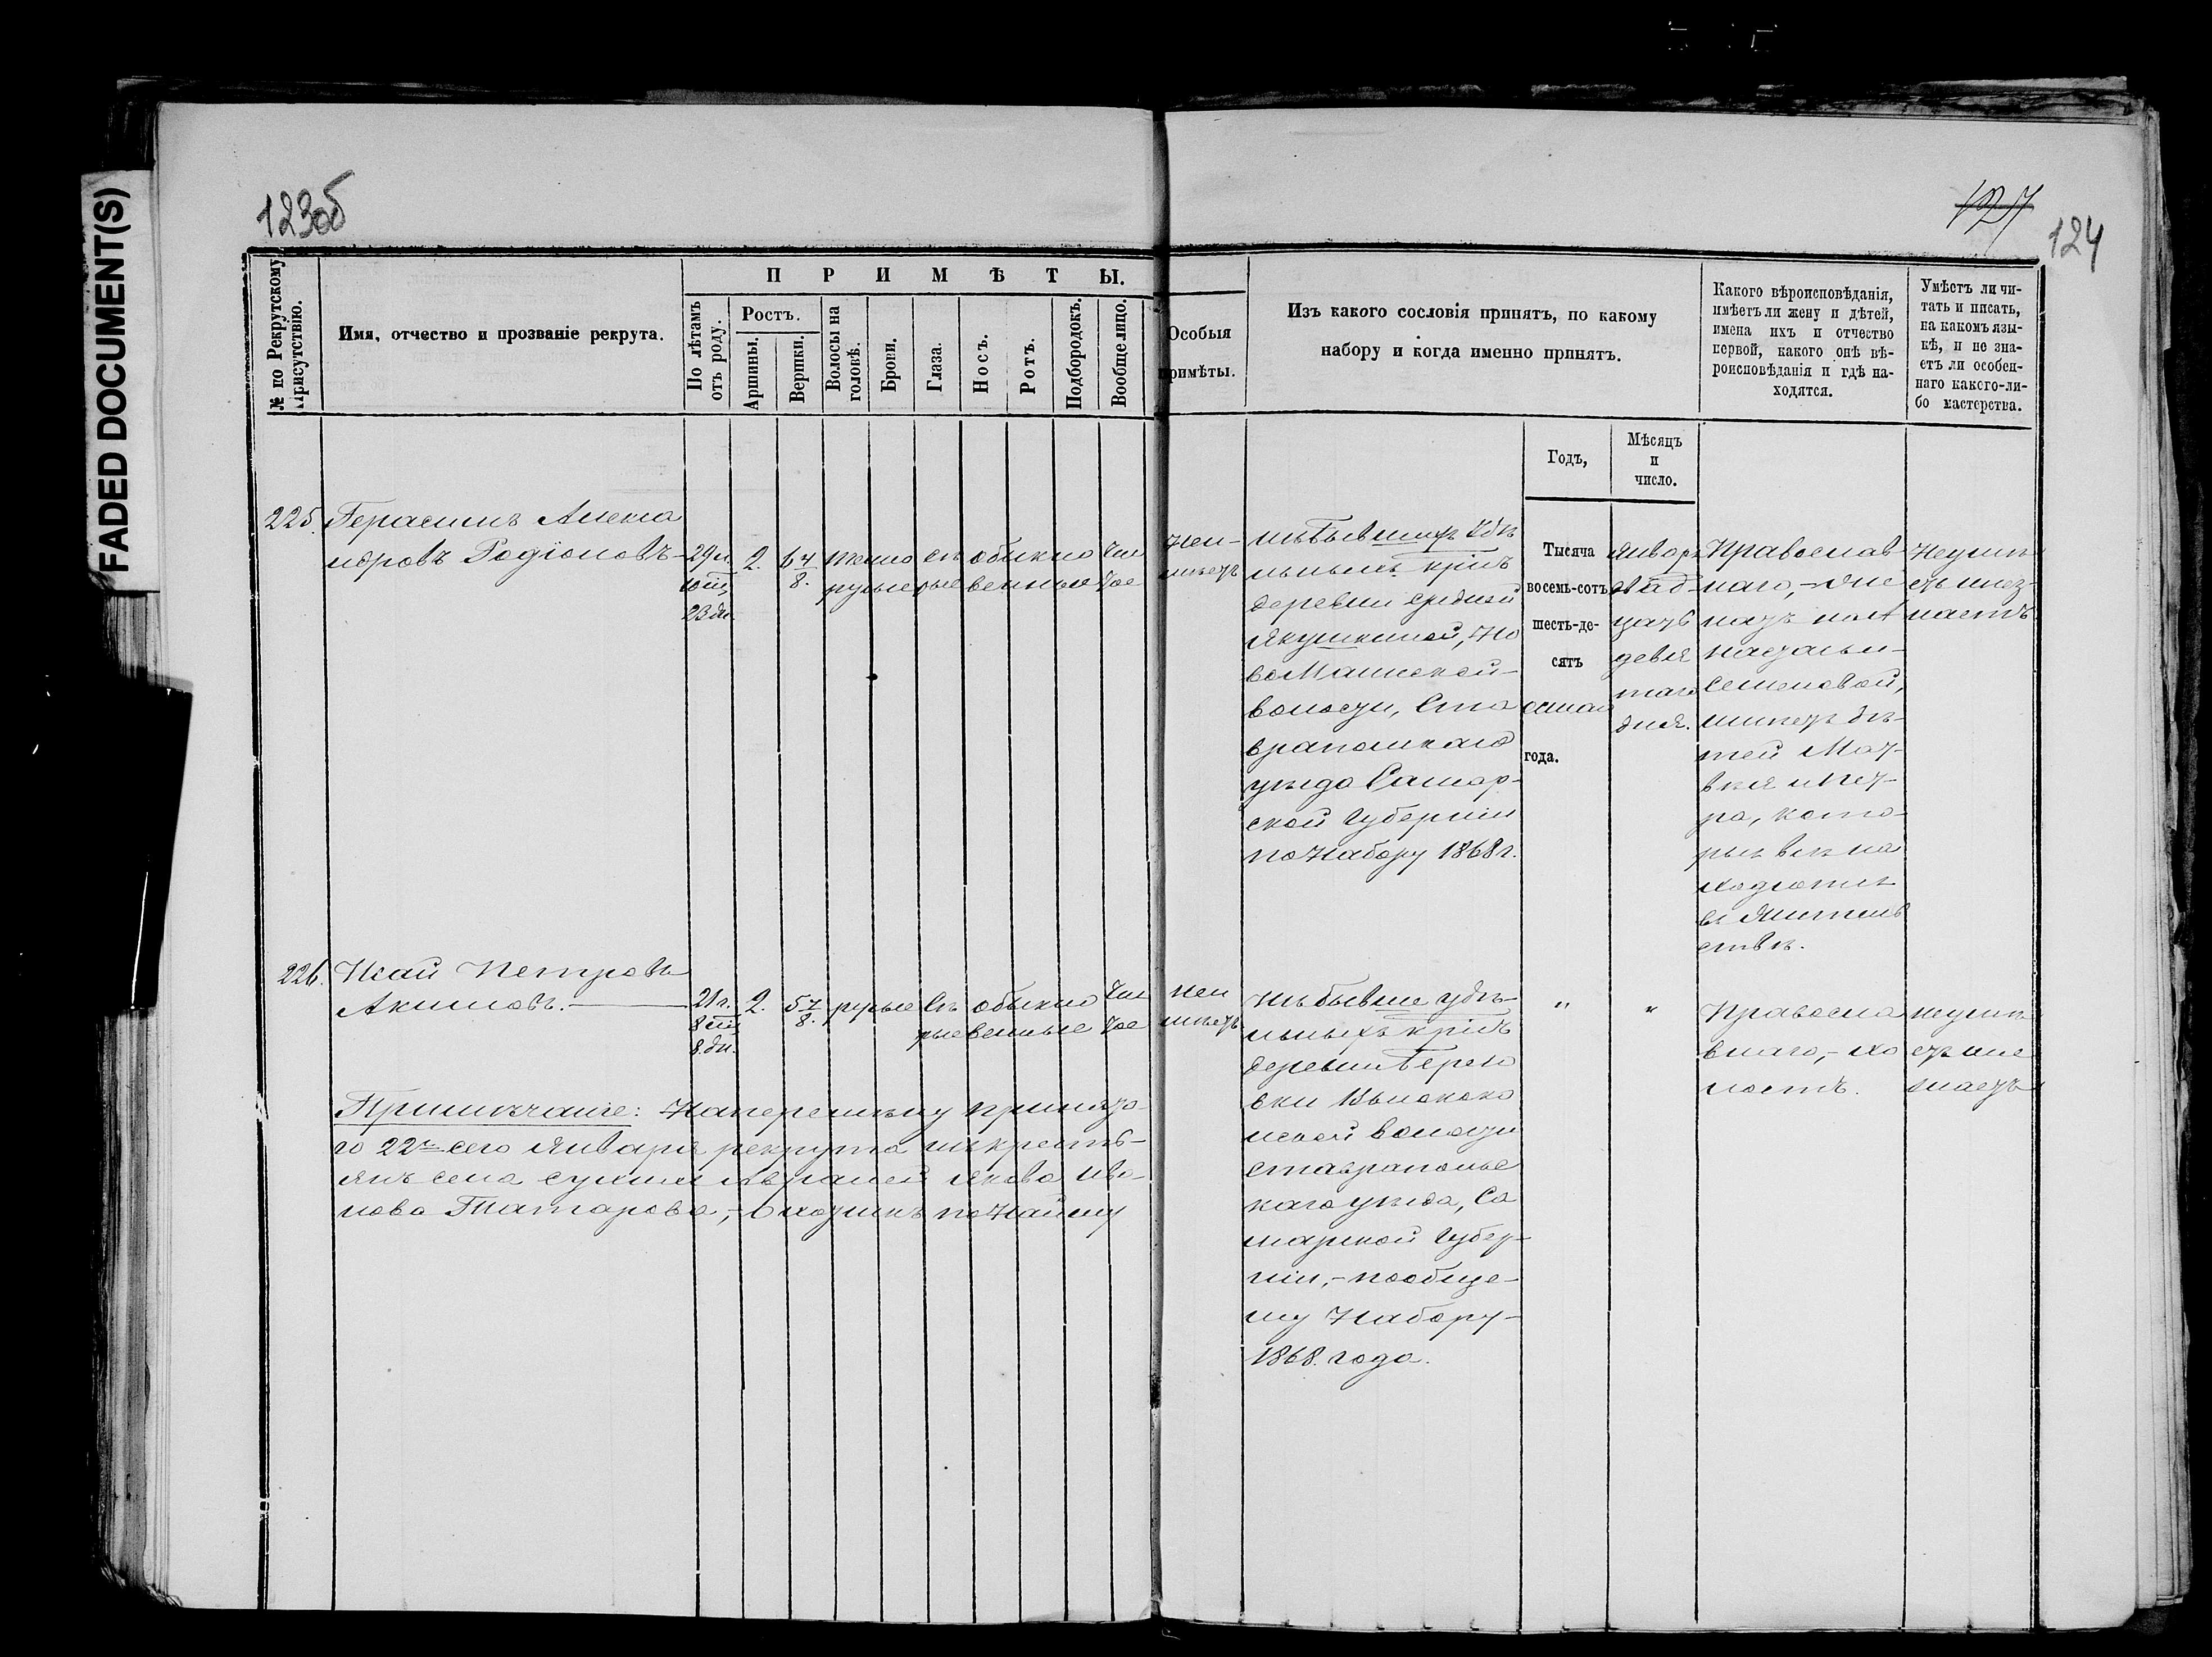 FADED DOCUMENT(S)
123об
127
124
№ по Рекрутскому Присутствію.
Имя, отчество и прозваніе рекрута.
ПРИМѢТЫ.
По лѣтамъ отъ роду.
Ростъ.
Аршины.
Вершки.
Волосы на головѣ.
Брови.
Глаза.
Носъ.
Ротъ.
Подбородокъ.
Вообще лицо.
Особыя
примѣты.
Изъ какого сословія принятъ, по какому
набору и когда именно принятъ.
Какого вѣроисповѣданія,
имѣетъ ли жену и дѣтей,
имена ихъ и отчество
первой, какого онѣ вѣ-
роисповѣданія и гдѣ на-
ходятся.
Умѣетъ ли чи-
тать и писать,
на какомъ язы-
кѣ, и не зна-
етъ ли особен-
наго какого-ли-
бо мастерства.
Годъ,
Мѣсяцъ
и
число.
225.
Герасимъ Алекса
ндровъ Родіоновъ
29 л.
10 мц.
23 дн.
2.
6 4/8.
темно
русые
сѣ
рые
обыкно
венные
чис
тое
Неи-
мѣетъ
Изъ бывшихъ Удѣ
льныхъ крнъ
деревни Средней
Якушкиной, Но
воМаинской
волости, Ста
вропольскаго
уѣзда Самар-
ской Губерніи
по Набору 1868 г.
Тысяча
восемь-сотъ
шесть-де-
сятъ
осмаго
года.
Январь
двад-
цать
девя
таго
дня.
Православ
наго, - жена
Настасьи
Семеновой,
имѣетъ дѣ-
тей Мат-
вѣя и Пет-
ра, кото-
рые всѣ на
ходются
въ жительст
ствѣ.
Неумѣ
етъ и нез-
наетъ
226.
Исай Петровъ
Акимовъ.
21 г.
8 мц
8 дн.
2.
5 7/8.
русые
сѣ
рые
обыкно
венные
чис
тое
неи
мѣетъ
Изъ бывше удѣ-
льныхъ крнъ
деревни Терен
вки Высоко
ской волости
Ставропольс
каго уѣзда, Са
марской Губер-
ніи, - по обще-
му Набору
1868. года.
"
"
Правосла
внаго, - хо
лостъ.
неумѣ
етъ и не
знаетъ
Примѣчаніе: На перемѣну принято-
го 22го сего Января рекрута изъ крестъ-
янъ села Сухихъ Авралей Якова Ива-
нова Татарова, - Охотникъ по Найму